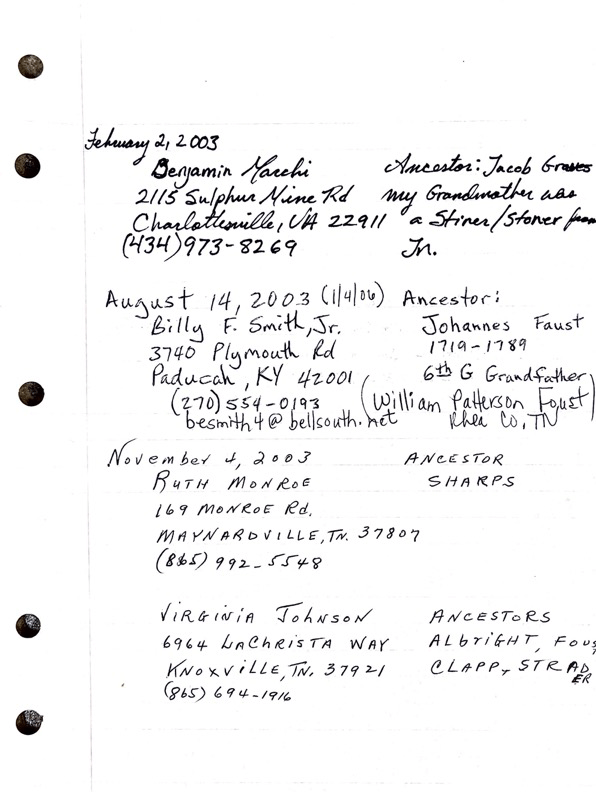 February 2, 2003
Benjamin Marchi
2115 Sulphur Mine Rd
Charlottesville, VA 22911
(434)973-8269
Ancestor: Jacob Graves
my Grandmother was
a Stiner/Stoner from
Tn.
August 14, 2003 (1/4/06)
Billy F. Smith, Jr.
3740 Plymouth Rd
Paducah, KY 42001
(270) 554-0193
besmith4@bellsouth.net
Ancestor:
Johannes Faust
1719-1789
6th G Grandfather
(William Patterson Foust)
Rhea Co, TN
November 4, 2003
RUTH MONROE
169 MONROE Rd.
MAYNARDVILLE, TN. 37807
(865) 992-5548
ANCESTOR
SHARPS
VIRGINIA JOHNSON
6964 LACHRISTA WAY
KNOXVILLE, TN. 37921
(865) 694-1916
ANCESTORS
ALBRIGHT, FOUST
CLAPP, STRADER